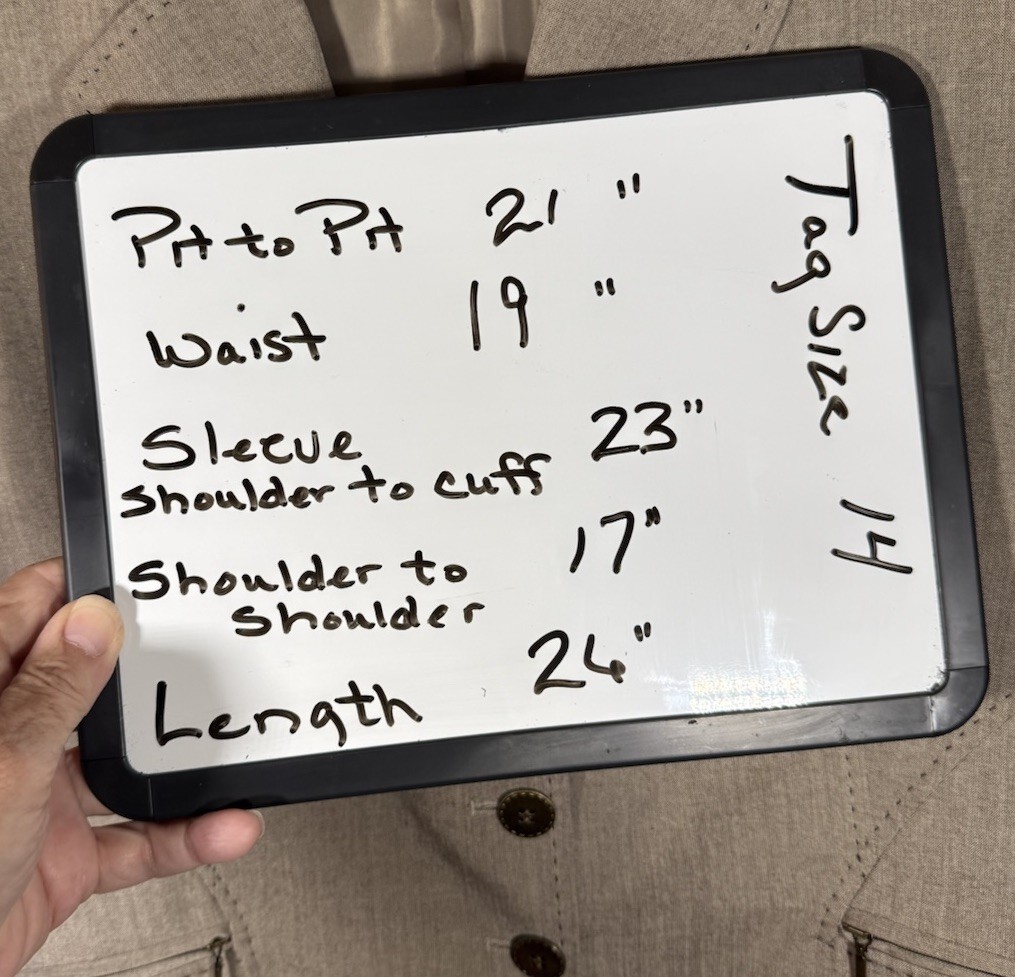 Pit to Pit 21"
Waist 19"
Sleeve 23"
Shoulder to cuff
Shoulder to 17"
Shoulder
Length 26"
Tag Size 14